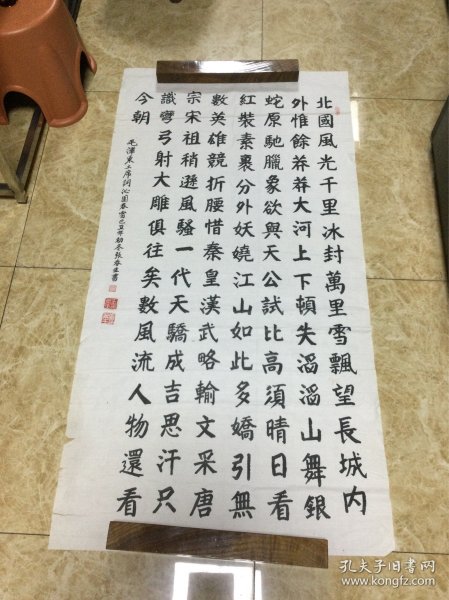 北國風光千里冰封萬里雪飄望長城内
外惟餘莽莽大河上下頓失滔滔山舞銀
蛇原馳臘象欲與天公試比高須晴日看
紅裝素裹分外妖嬈江山如此多嬌引無
數英雄競折腰惜秦皇漢武略輸文采唐
宗宋祖稍遜風騷一代天驕成吉思汗只
識彎弓射大雕俱往矣數風流人物還看
今朝
毛澤東主席詞沁園春雪己丑年初冬張春生書
孔夫子旧书网
www.kongfz.com